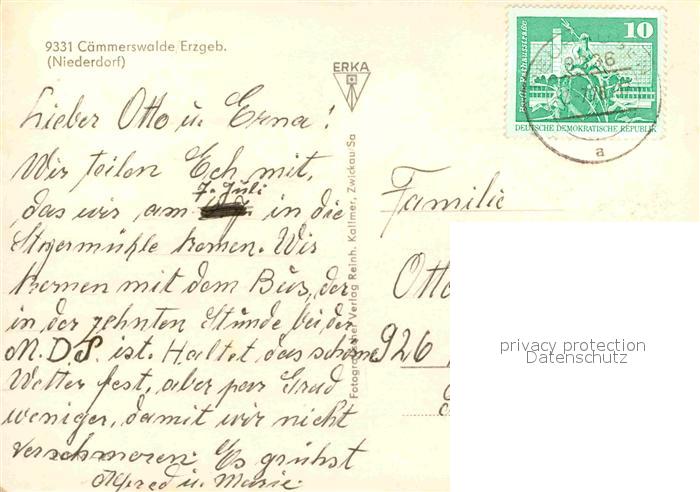 9331 Cämmerswalde/Erzgeb.
(Niederdorf)
ERKA
Lieber Otto u. Erna!
Wir teilen Ech mit,
7. Juli
das wir am in die
komen. Wir
komen mit dem Bus, der
in der zehnten Stunde bei der
M.D.S. ist. Haltet das schöne
Wetter fest, aber par Grad
weniger, damit wir nicht
verschmoren. Es grühst
Alfred u. Marie.
Fotografischer Verlag Reinh. Kallmer, Zwickau/Sa
10
Berlin, Rathausstraße
DEUTSCHE DEMOKRATISCHE REPUBLIK
a
Familie
Otto
926
privacy protection
Datenschutz